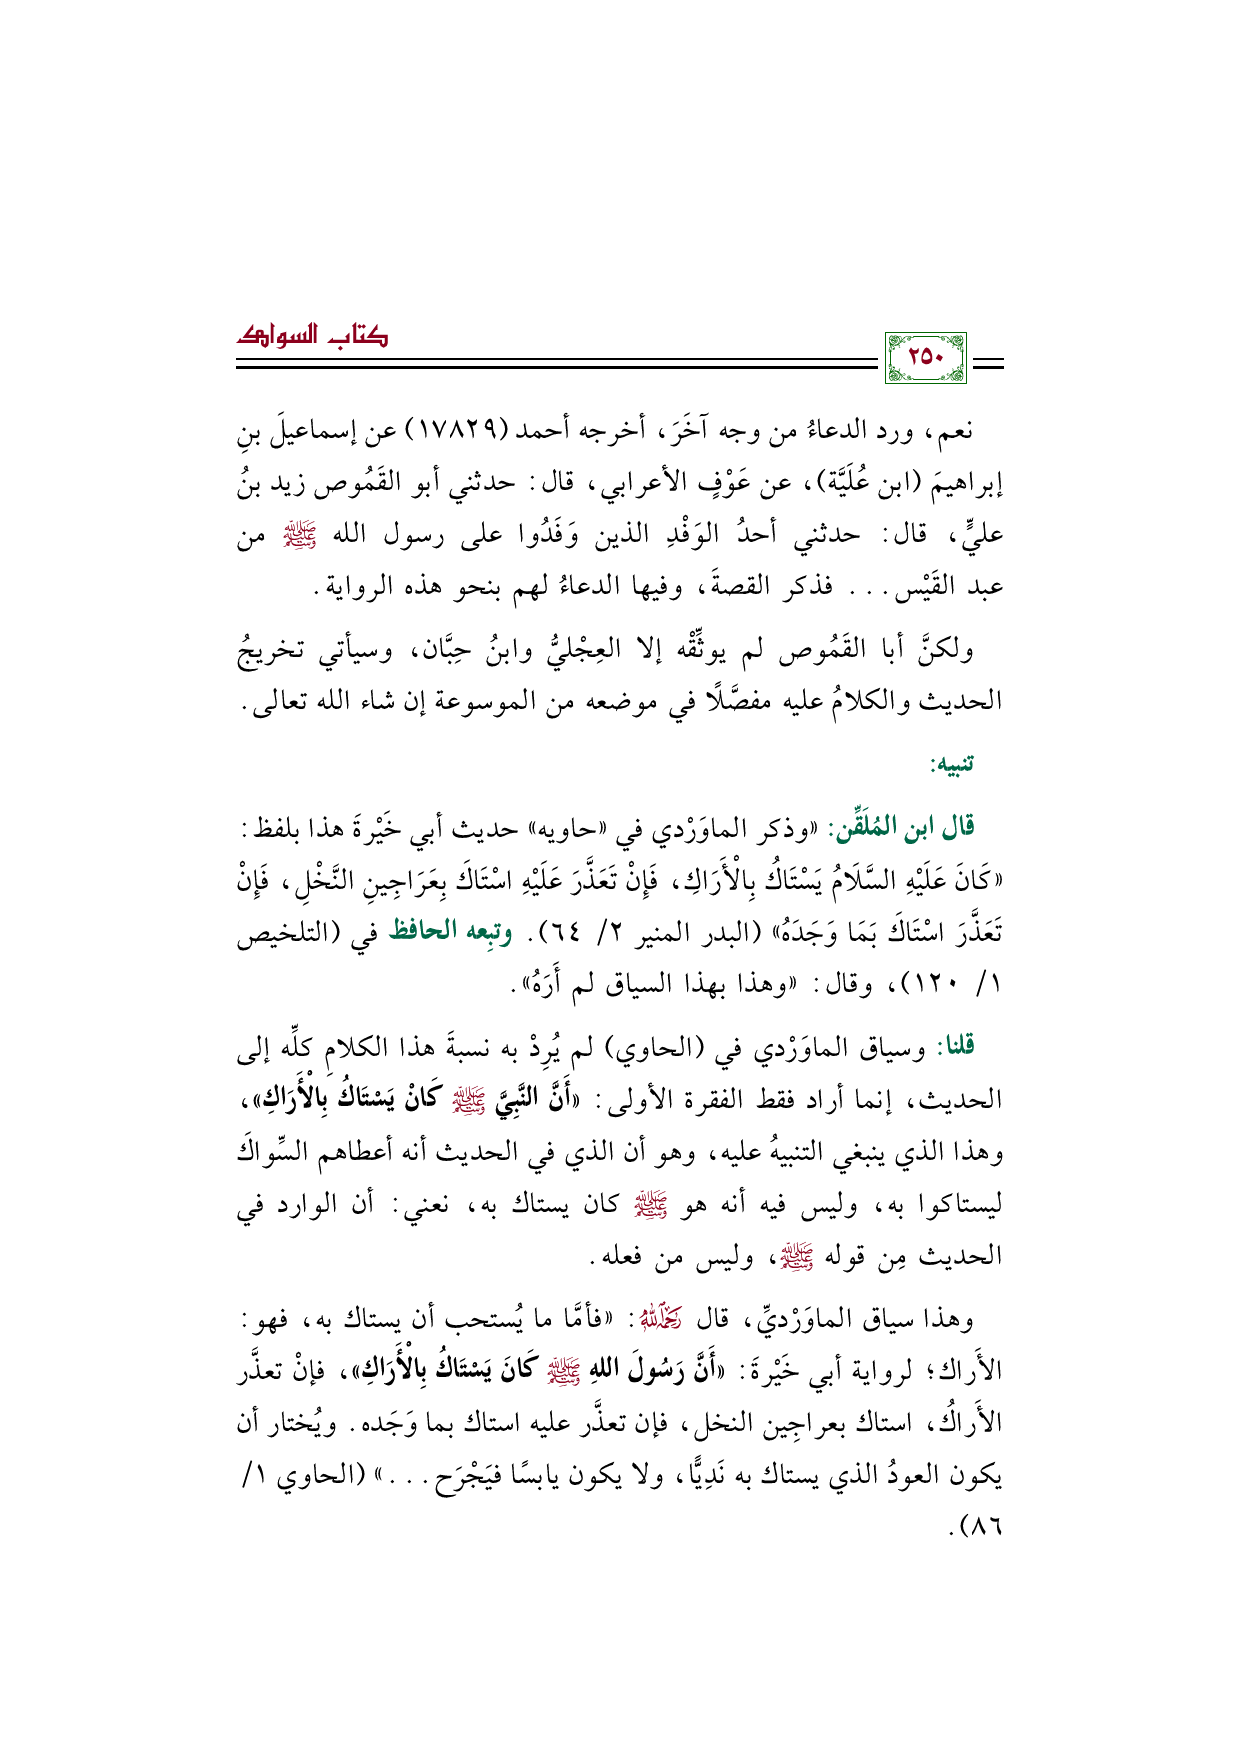 كتاب السواك
٢٥٠
نعم، ورد الدعاءُ من وجه آخَرَ، أخرجه أحمد (١٧٨٢٩) عن إسماعيلَ بنِ
إبراهيمَ (ابن عُلَيَّة)، عن عَوْفٍ الأعرابي، قال: حدثني أبو القَمُوص زيد بنُ
عليٍّ، قال: حدثني أحدُ الوَفْدِ الذين وَفَدُوا على رسول الله ﷺ من
عبد القَيْس... فذكر القصةَ، وفيها الدعاءُ لهم بنحو هذه الرواية.
ولكنَّ أبا القَمُوص لم يوثِّقْه إلا العِجْليُّ وابنُ حِبَّان، وسيأتي تخريجُ
الحديث والكلامُ عليه مفصَّلًا في موضعه من الموسوعة إن شاء الله تعالى.
تنبيه:
قال ابن المُلَقِّن: «وذكر الماوَرْدي في «حاويه» حديث أبي خَيْرةَ هذا بلفظ:
«كَانَ عَلَيْهِ السَّلَامُ يَسْتَاكُ بِالْأَرَاكِ، فَإِنْ تَعَذَّرَ عَلَيْهِ اسْتَاكَ بِعَرَاجِينِ النَّخْلِ، فَإِنْ
تَعَذَّرَ اسْتَاكَ بَمَا وَجَدَهُ» (البدر المنير ٢/ ٦٤). وتبِعه الحافظ في (التلخيص
١/ ١٢٠)، وقال: «وهذا بهذا السياق لم أَرَهُ».
قلنا: وسياق الماوَرْدي في (الحاوي) لم يُرِدْ به نسبةَ هذا الكلامِ كلِّه إلى
الحديث، إنما أراد فقط الفقرة الأولى: «أَنَّ النَّبِيَّ ﷺ كَانْ يَسْتَاكُ بِالْأَرَاكِ»،
وهذا الذي ينبغي التنبيهُ عليه، وهو أن الذي في الحديث أنه أعطاهم السِّواكَ
ليستاكوا به، وليس فيه أنه هو ﷺ كان يستاك به، نعني: أن الوارد في
الحديث مِن قوله ﷺ، وليس من فعله.
وهذا سياق الماوَرْديِّ، قال رَحِمَهُ اللهُ: «فأمَّا ما يُستحب أن يستاك به، فهو:
الأَراك؛ لرواية أبي خَيْرةَ: «أَنَّ رَسُولَ اللهِ ﷺ كَانَ يَسْتَاكُ بِالْأَرَاكِ»، فإنْ تعذَّر
الأَراكُ، استاك بعراجِين النخل، فإن تعذَّر عليه استاك بما وَجَده. ويُختار أن
يكون العودُ الذي يستاك به نَدِيًّا، ولا يكون يابسًا فيَجْرَح...» (الحاوي ١/
٨٦).